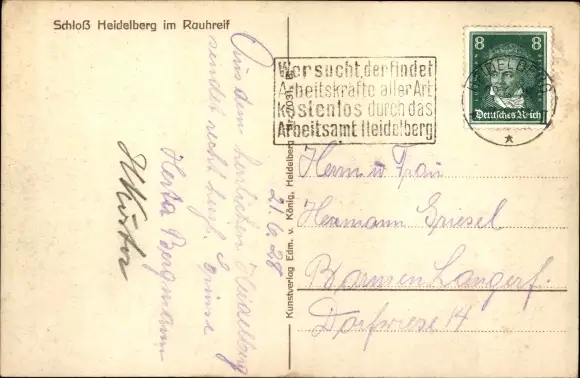 Schloß Heidelberg im Rauhreif
Aus dem herrlichen Heidelberg
sendet recht herzl. Grüsse
Herta Bergmann
21.6.28
Kunstverlag Edm. v. König, Heidelberg
Wer sucht, der findet
Arbeitskräfte aller Art
kostenlos durch das
Arbeitsamt Heidelberg
8 8
Deutsches Reich
HEIDELBERG
Herrn u Frau
Hermann Griesel
Barmen Langerf.
Dorfwiese 14